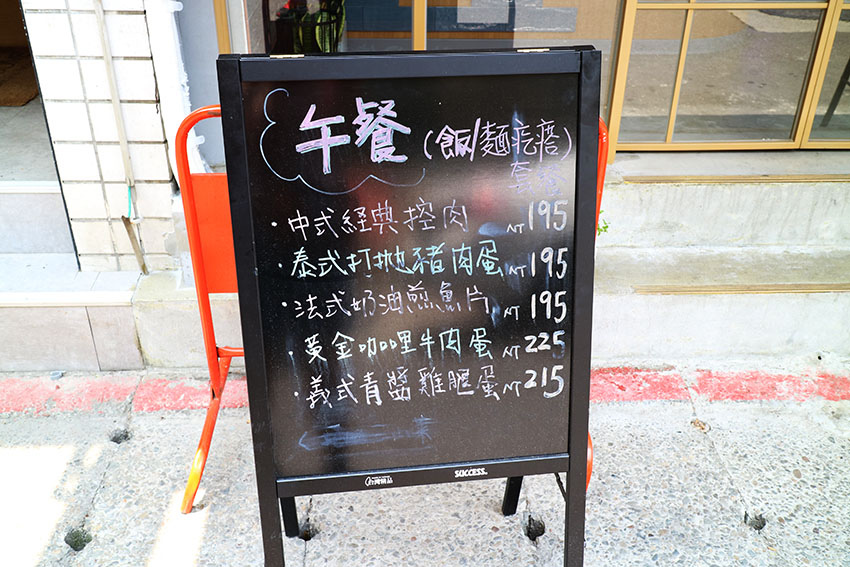 午餐(飯/麵疙瘩)
套餐
·中式經典控肉 NT195
·泰式打拋豬肉蛋 NT195
·法式奶油煎魚片 NT195
·黃金咖哩牛肉蛋 NT225
·義式青醬雞腿蛋 NT215
SUCCESS